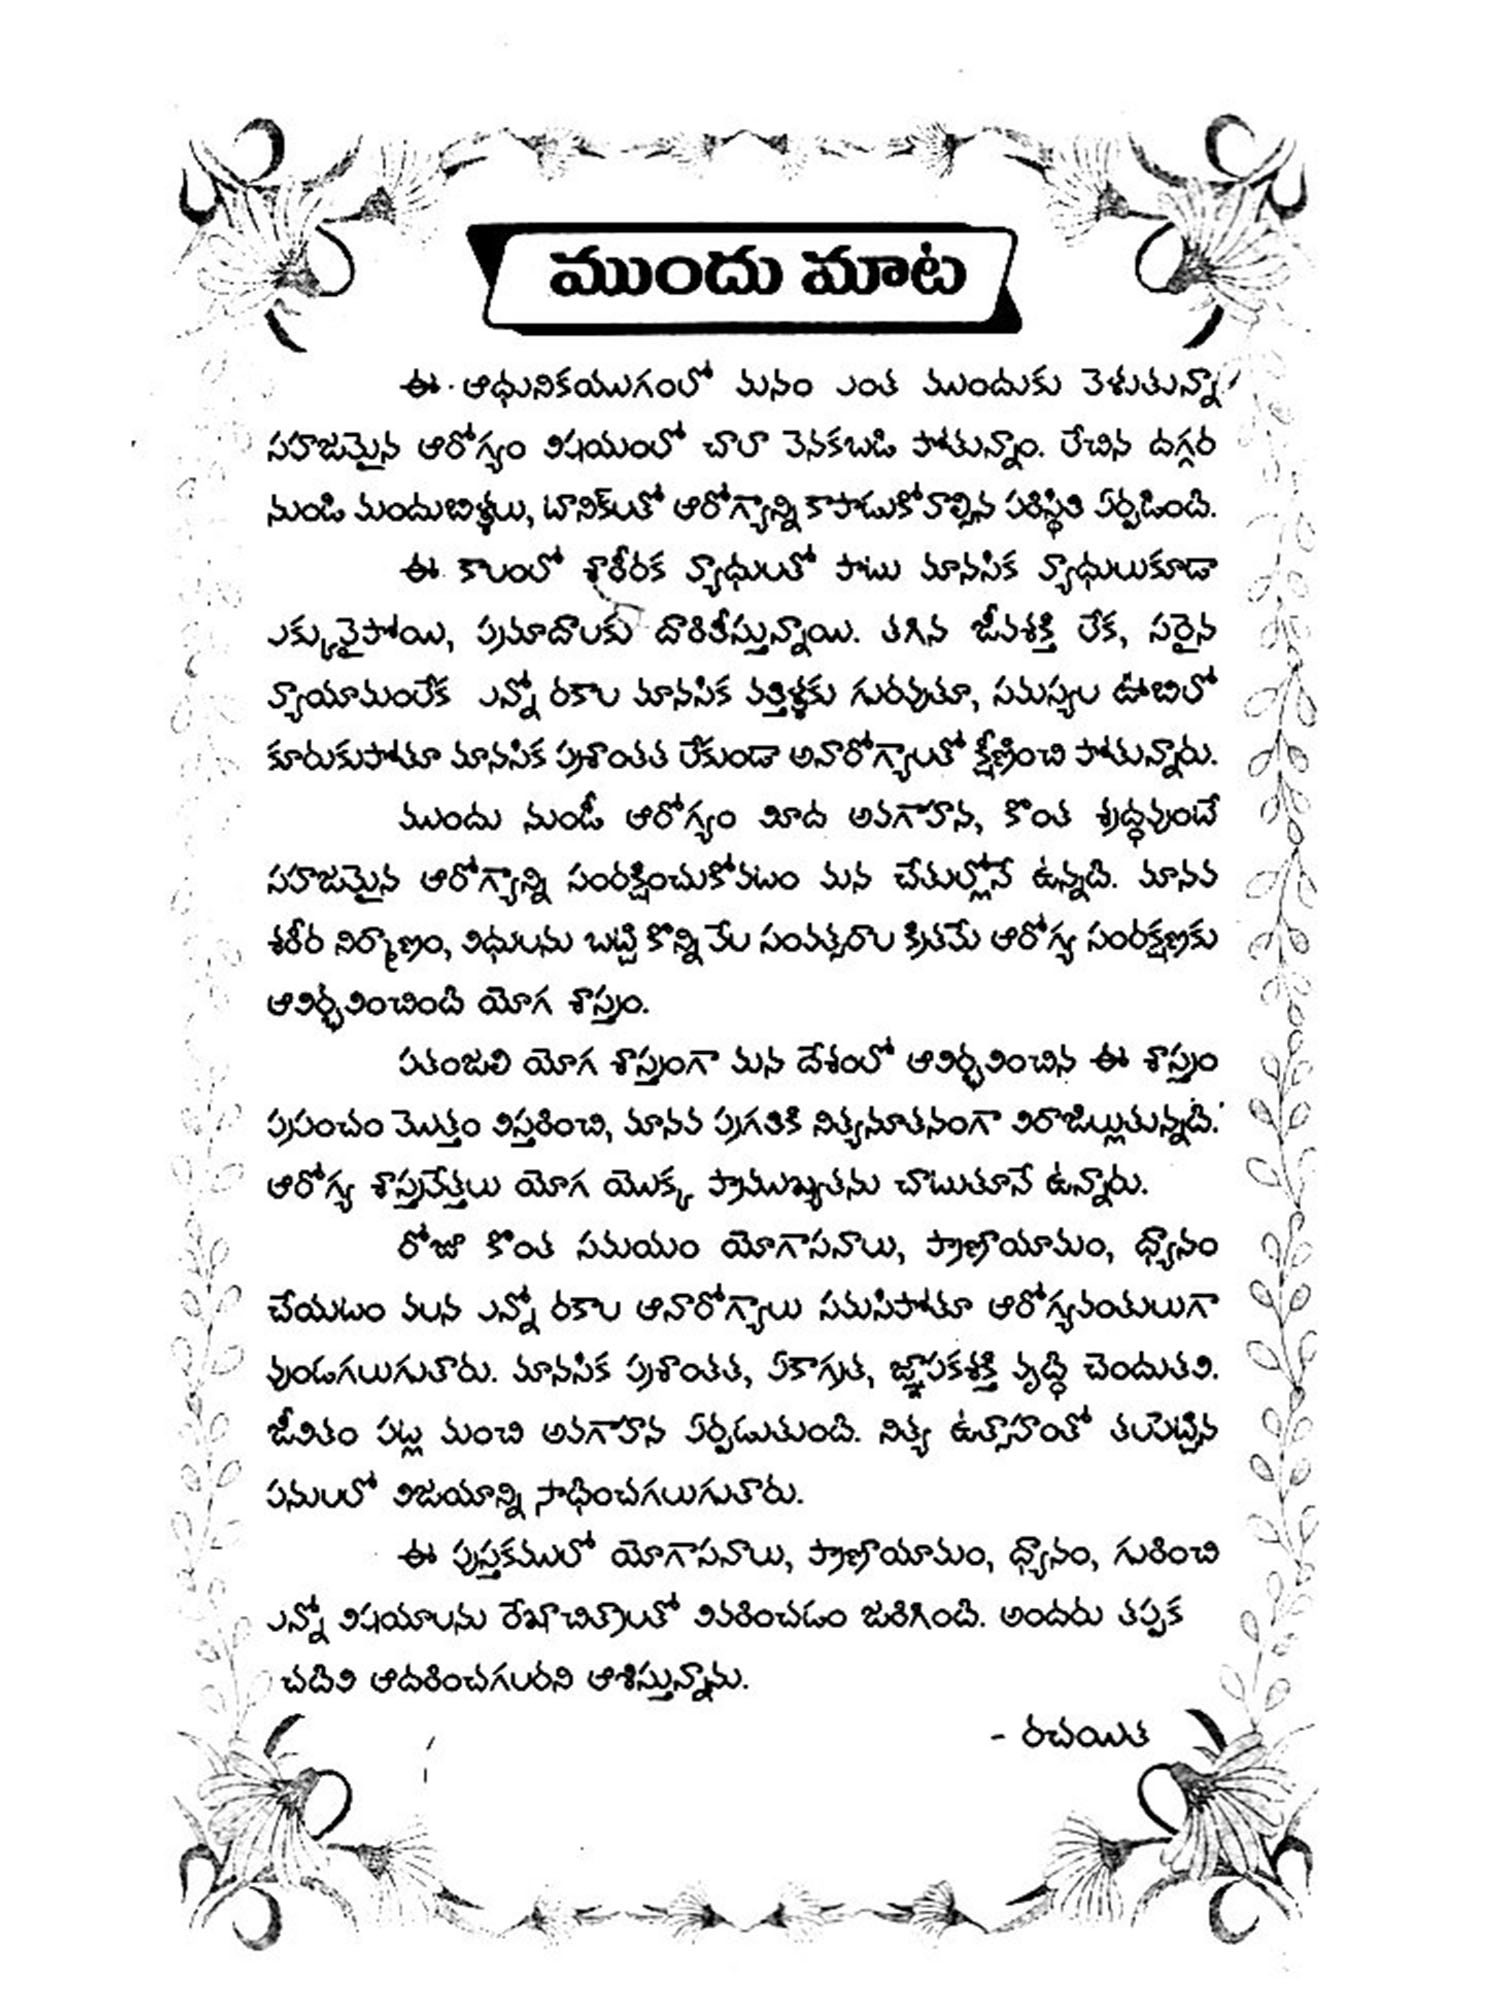 ముందు మాట
ఈ ఆధునికయుగంలో మనం ఎంత ముందుకు వెళుతున్నా
సహజమైన ఆరోగ్యం విషయంలో చాలా వెనకబడి పోతున్నాం. లేచిన దగ్గర
నుండి మందుబిళ్ళలు, టానిక్‌లతో ఆరోగ్యాన్ని కాపాడుకోవాల్సిన పరిస్థితి ఏర్పడింది.
ఈ కాలంలో శారీరక వ్యాధులతో పాటు మానసిక వ్యాధులుకూడా
ఎక్కువైపోయి, ప్రమాదాలకు దారితీస్తున్నాయి. తగిన జీవశక్తి లేక, సరైన
వ్యాయామంలేక ఎన్నో రకాల మానసిక వత్తిళ్ళకు గురవుతూ, సమస్యల ఊబిలో
కూరుకుపోతూ మానసిక ప్రశాంతత లేకుండా అనారోగ్యాలతో క్షీణించి పోతున్నారు.
ముందు నుండీ ఆరోగ్యం మీద అవగాహన, కొంత శ్రద్ధవుంటే
సహజమైన ఆరోగ్యాన్ని సంరక్షించుకోవటం మన చేతుల్లోనే ఉన్నది. మానవ
శరీర నిర్మాణం, విధులను బట్టి కొన్ని వేల సంవత్సరాల క్రితమే ఆరోగ్య సంరక్షణకు
ఆవిర్భవించింది యోగ శాస్త్రం.
పతంజలి యోగ శాస్త్రంగా మన దేశంలో ఆవిర్భవించిన ఈ శాస్త్రం
ప్రపంచం మొత్తం విస్తరించి, మానవ ప్రగతికి నిత్యనూతనంగా విరాజిల్లుతున్నది.
ఆరోగ్య శాస్త్రవేత్తలు యోగ యొక్క ప్రాముఖ్యతను చాటుతూనే ఉన్నారు.
రోజూ కొంత సమయం యోగాసనాలు, ప్రాణాయామం, ధ్యానం
చేయటం వలన ఎన్నో రకాల అనారోగ్యాలు సమసిపోతూ ఆరోగ్యవంతులుగా
వుండగలుగుతారు. మానసిక ప్రశాంతత, ఏకాగ్రత, జ్ఞాపకశక్తి వృద్ధి చెందుతవి.
జీవితం పట్ల మంచి అవగాహన ఏర్పడుతుంది. నిత్య ఉత్సాహంతో తలపెట్టిన
పనులలో విజయాన్ని సాధించగలుగుతారు.
ఈ పుస్తకములో యోగాసనాలు, ప్రాణాయామం, ధ్యానం, గురించి
ఎన్నో విషయాలను రేఖాచిత్రాలతో వివరించడం జరిగింది. అందరు తప్పక
చదివి ఆదరించగలరని ఆశిస్తున్నాను.
- రచయిత